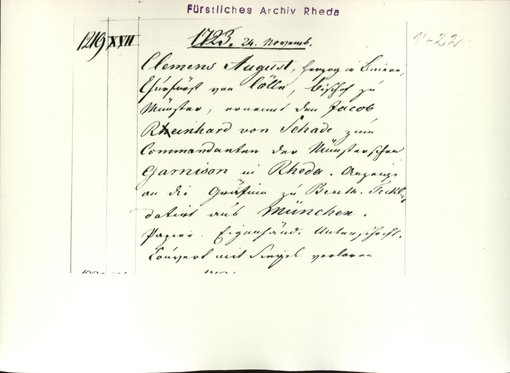 Fürstliches Archiv Rheda
1219 XVII 1723. 24. Novemb. 1422
Clemens August, Herzog in Baiern,
Churfürst von Cölln, Bischof zu
Münster, ernennt den Jacob
Reinhard von Schade zum
Commandanten der Münsterschen
Garnison in Rheda. Anzeige
an die Gräfinn zu Benth. Teckl.
datirt aus München.
Papier. Eigenhänd. Unterschrift.
Couvert mit Siegel verloren